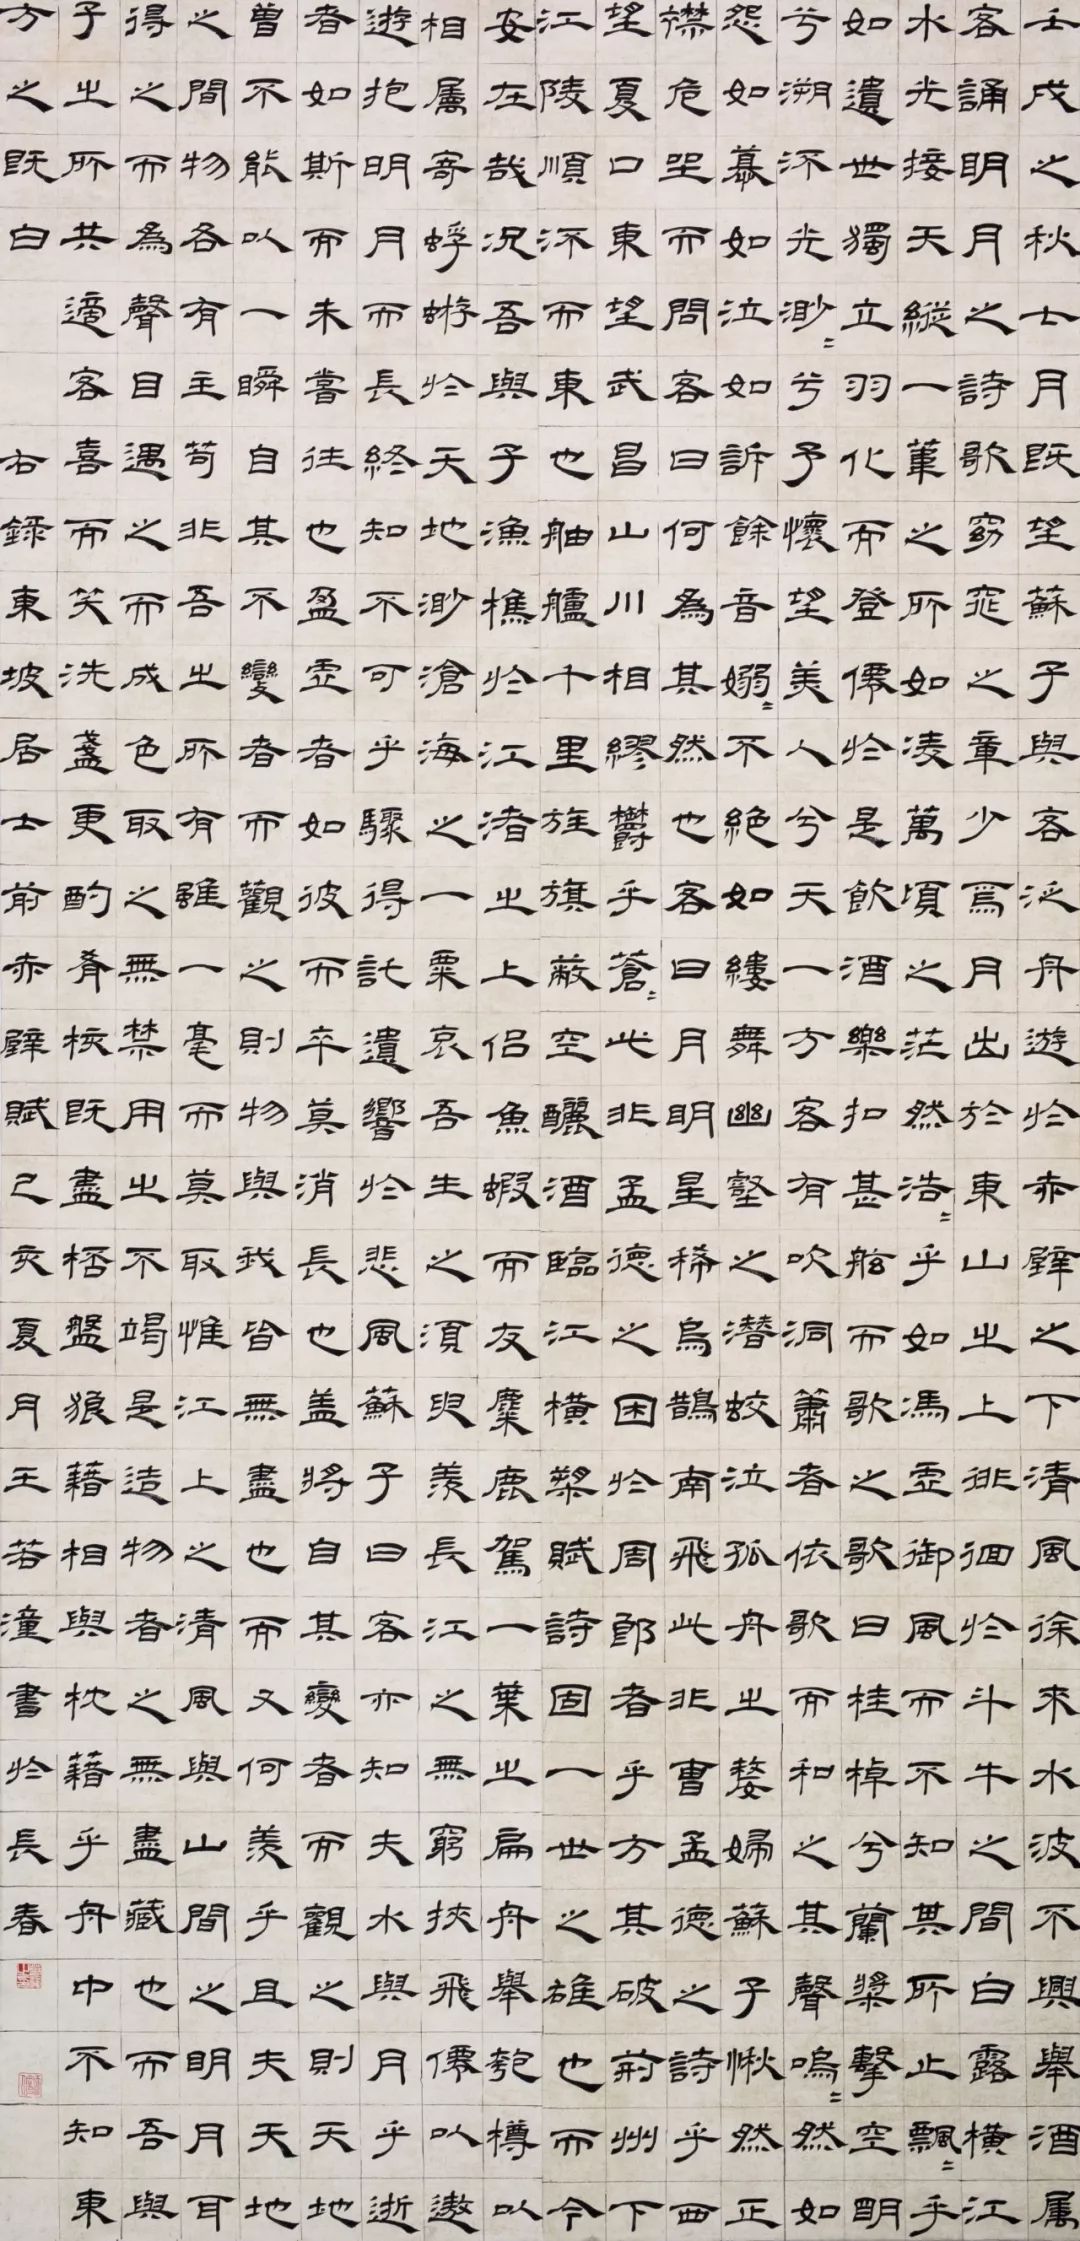 壬戌之秋七月既望蘇子與客泛舟遊於赤壁之下清風徐來水波不興舉酒属
客誦明月之詩歌窈窕之章少焉月出於東山之上徘徊於斗牛之間白露横江
水光接天縱一葦之所如凌萬頃之茫然浩〻乎如馮虚御風而不知其所止飄〻乎
如遺世獨立羽化而登僊於是飲酒樂扣甚舷而歌之歌曰桂棹兮蘭槳擊空明
兮溯流光渺〻兮予懷望美人兮天一方客有吹洞簫者依歌而和之其聲嗚〻然如
怨如慕如泣如訴餘音嫋〻不絕如縷舞幽壑之潛蛟泣孤舟之嫠婦蘇子愀然正
襟危坐而問客曰何為其然也客曰月明星稀烏鵲南飛此非曹孟德之詩乎西
望夏口東望武昌山川相繆鬱乎蒼〻此非孟德之困於周郎者乎方其破荊州下
江陵順流而東也舳艫千里旌旗蔽空釃酒臨江横槊賦詩固一世之雄也而今
安在哉況吾與子漁樵於江渚之上侣魚蝦而友麋鹿駕一葉之扁舟舉匏樽以
相属寄蜉蝣於天地渺滄海之一粟哀吾生之須臾羨長江之無窮挾飛僊以遨
遊抱明月而長終知不可乎驟得託遺響於悲風蘇子曰客亦知夫水與月乎逝
者如斯而未嘗往也盈虚者如彼而卒莫消長也蓋將自其變者而觀之則天地
曾不能以一瞬自其不變者而觀之則物與我皆無盡也而又何羨乎且夫天地
之間物各有主苟非吾之所有雖一毫而莫取惟江上之清風與山間之明月耳
得之而為聲目遇之而成色取之無禁用之不竭是造物者之無盡藏也而吾與
子之所共適客喜而笑洗盞更酌肴核既盡桮盤狼藉相與枕藉乎舟中不知東
方之既白 右錄東坡居士前赤壁賦己亥夏月王若潼書於長春